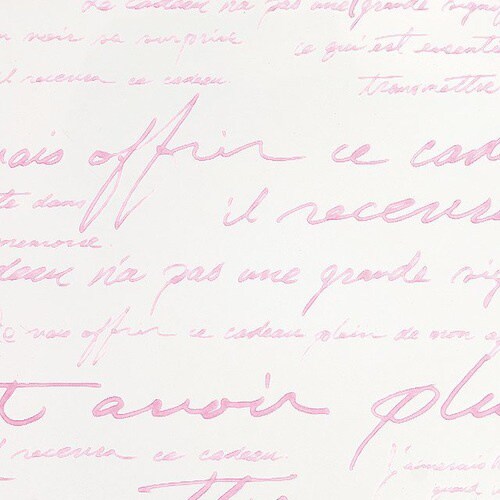 ce cadeau n'a pas une grande signi
voir sa surprise ce qui est essentie
il recevra ce cadeau. transmettre
vais offrir ce cad
te dans il recevra
memoire.
deau n'a pas une grande sig
Je vais offrir ce cadeau plein de mon a
t avoir plu
il recevra ce cadeau. J'aimerais
quand